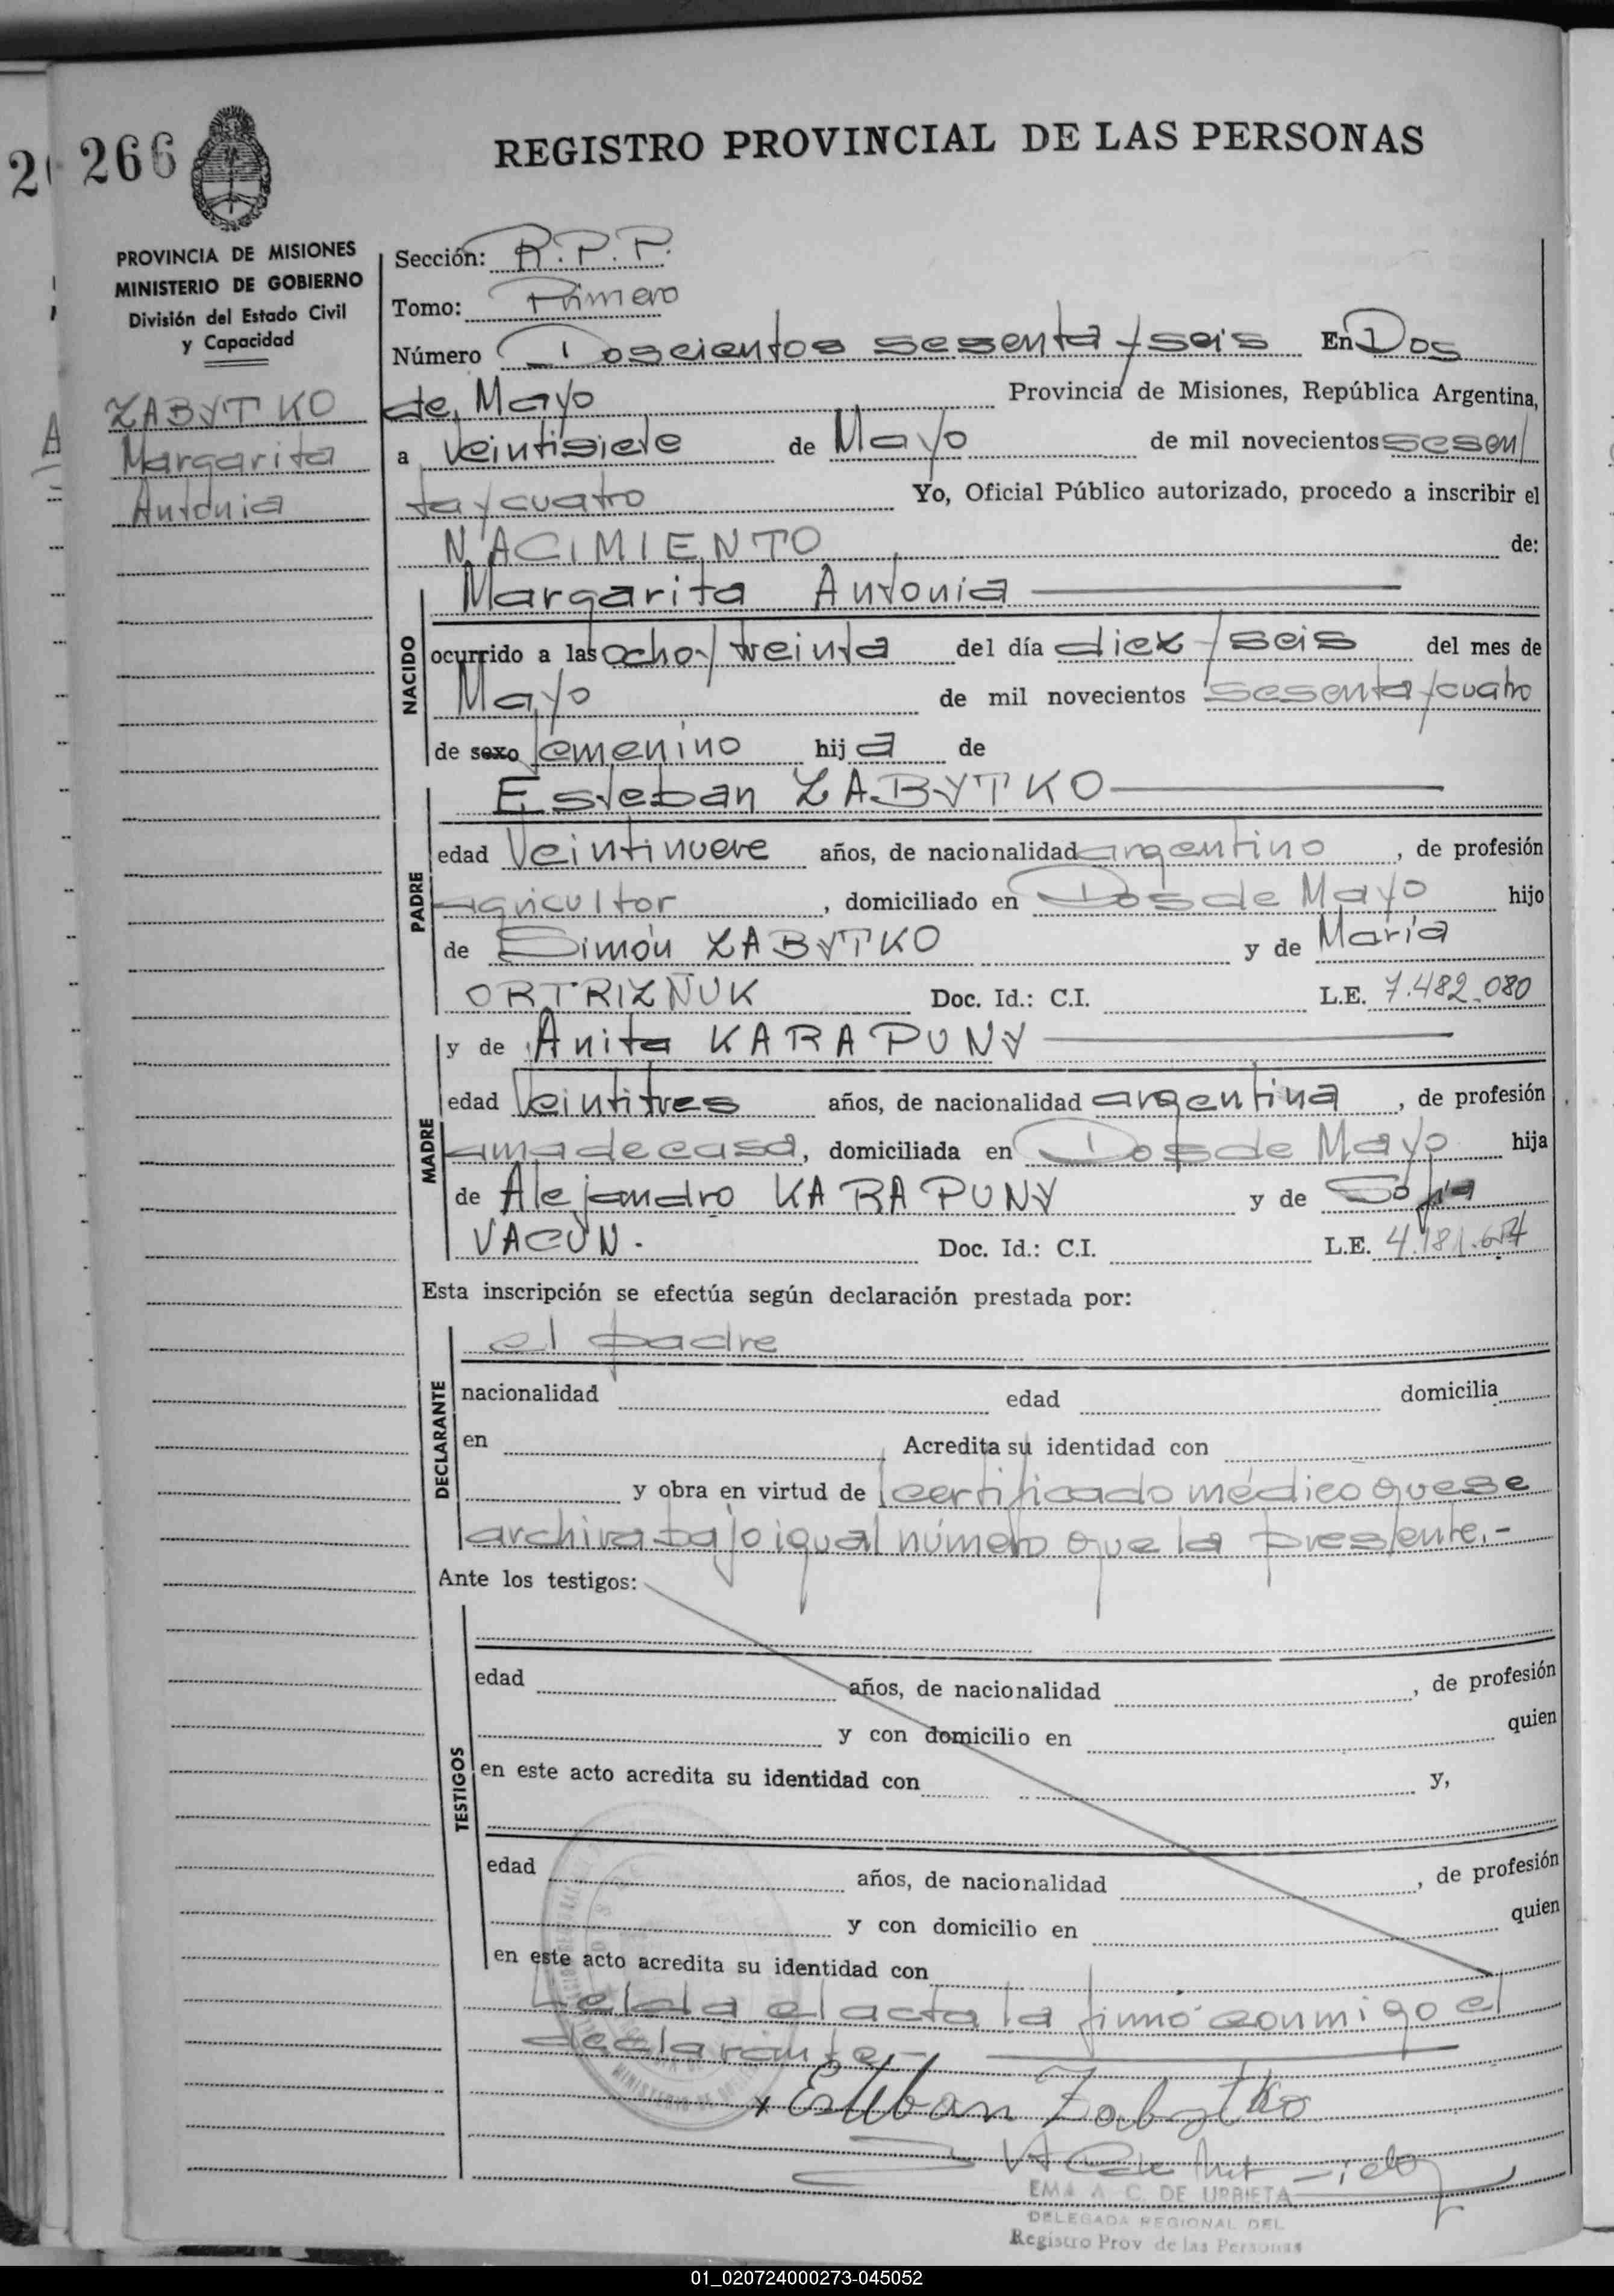 266
REGISTRO PROVINCIAL DE LAS PERSONAS
PROVINCIA DE MISIONES
MINISTERIO DE GOBIERNO
División del Estado Civil
y Capacidad
ZABYTKO
Margarita
Antonia
Sección: R.P.P.
Tomo: Primero
Número Doscientos sesenta y seis En Dos
de Mayo Provincia de Misiones, República Argentina,
a Veintisiete de Mayo de mil novecientos sesen/
ta y cuatro Yo, Oficial Público autorizado, procedo a inscribir el
NACIMIENTO de:
NACIDO
Margarita Antonia
ocurrido a las ocho y treinta del día diez y seis del mes de
Mayo de mil novecientos sesenta y cuatro
de sexo femenino hija de
PADRE
Esteban ZABYTKO
edad Veintinueve años, de nacionalidad argentino, de profesión
agricultor, domiciliado en Dos de Mayo hijo
de Simón ZABYTKO y de María
ORTRIZÑUK Doc. Id.: C.I. L.E. 7.482.080
MADRE
y de Anita KARAPUNY
edad Veintitres años, de nacionalidad argentina, de profesión
ama de casa, domiciliada en Dos de Mayo hija
de Alejandro KARAPUNY y de Sofia
VACUN. Doc. Id.: C.I. L.E.
Esta inscripción se efectúa según declaración prestada por:
DECLARANTE
el padre
nacionalidad edad domicilia
en Acredita su identidad con
y obra en virtud de certificado médico que se
archiva bajo igual número que la presente.-
Ante los testigos:
TESTIGOS
edad años, de nacionalidad , de profesión
y con domicilio en quien
en este acto acredita su identidad con y,
edad años, de nacionalidad , de profesión
y con domicilio en quien
en este acto acredita su identidad con
Leida el acta la firmó conmigo el
declarante.-
x Esteban Zabytko
EMA A. C. DE URBIETA
DELEGADA REGIONAL DEL
Registro Prov de las Personas
01_020724000273-045052